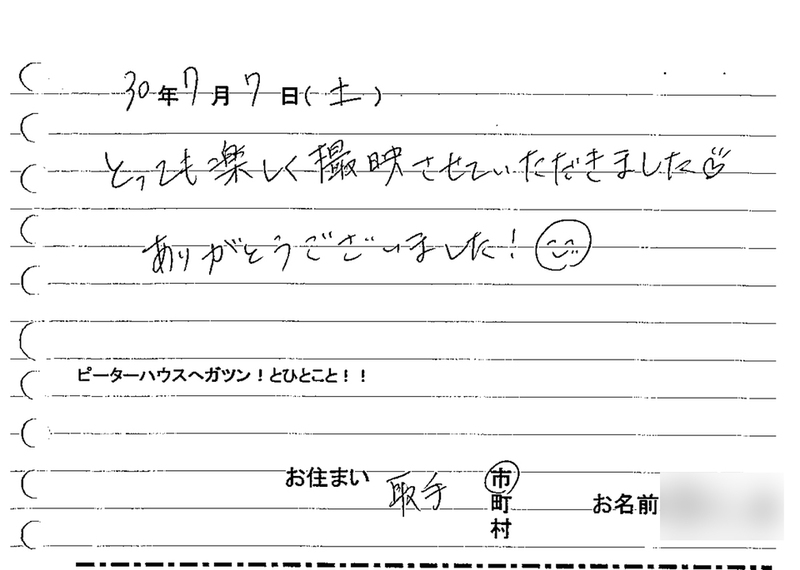 30年7月7日(土)
とっても楽しく撮映させていただきました
ありがとうございました！
ピーターハウスへガツン！とひとこと！！
お住まい 取手 市 お名前
町
村